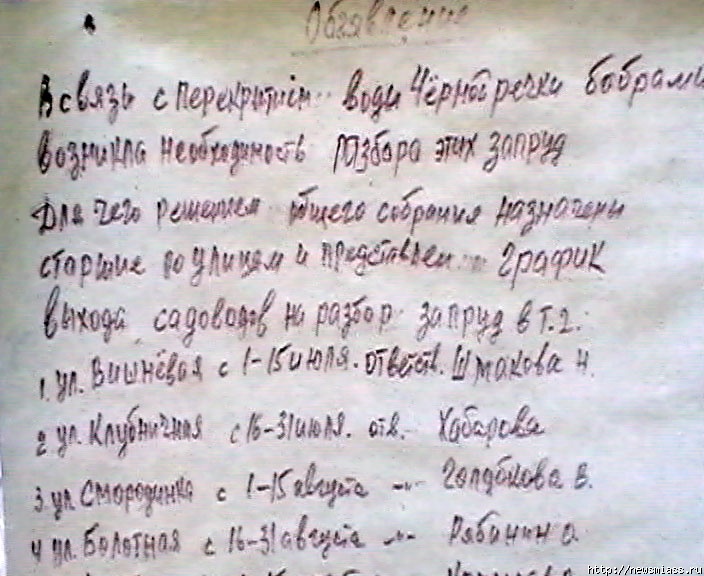 Объявление
В связи с перекрытием воды Чёрной речки бобрами
возникла необходимость разбора этих запруд
Для чего решением общего собрания назначены
старшие по улицам и представлен график
выхода садоводов на разбор запруд в т.г.
1. ул. Вишнёвая с 1-15 июля. ответств. Шмакова Н.
2 ул. Клубничная с 16-31 июля. отв. Хабарова
3. ул. Смородинка с 1-15 августа -"- Голдобкова В.
4 ул. Болотная с 16-31 августа -"- Рябинин О.
http://newsmiass.ru